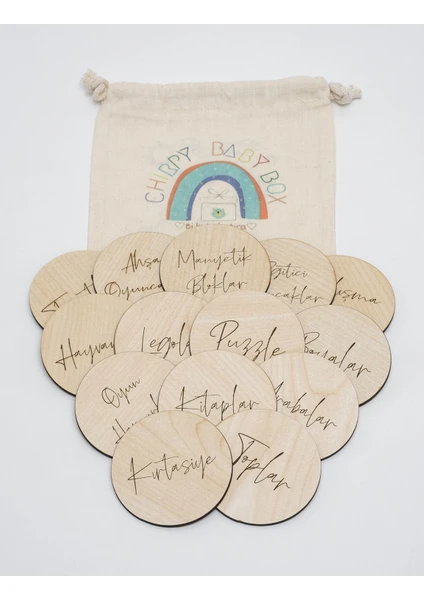 CHIRPY BABY BOX
Ahşa
Oyunca
Manyetik
Bloklar
Eğitici
caklar
uşma
Hayvan
Legola
Puzzle
Boyalar
Oyun
Kitaplar
Arabalar
Kırtasiye
Toplar